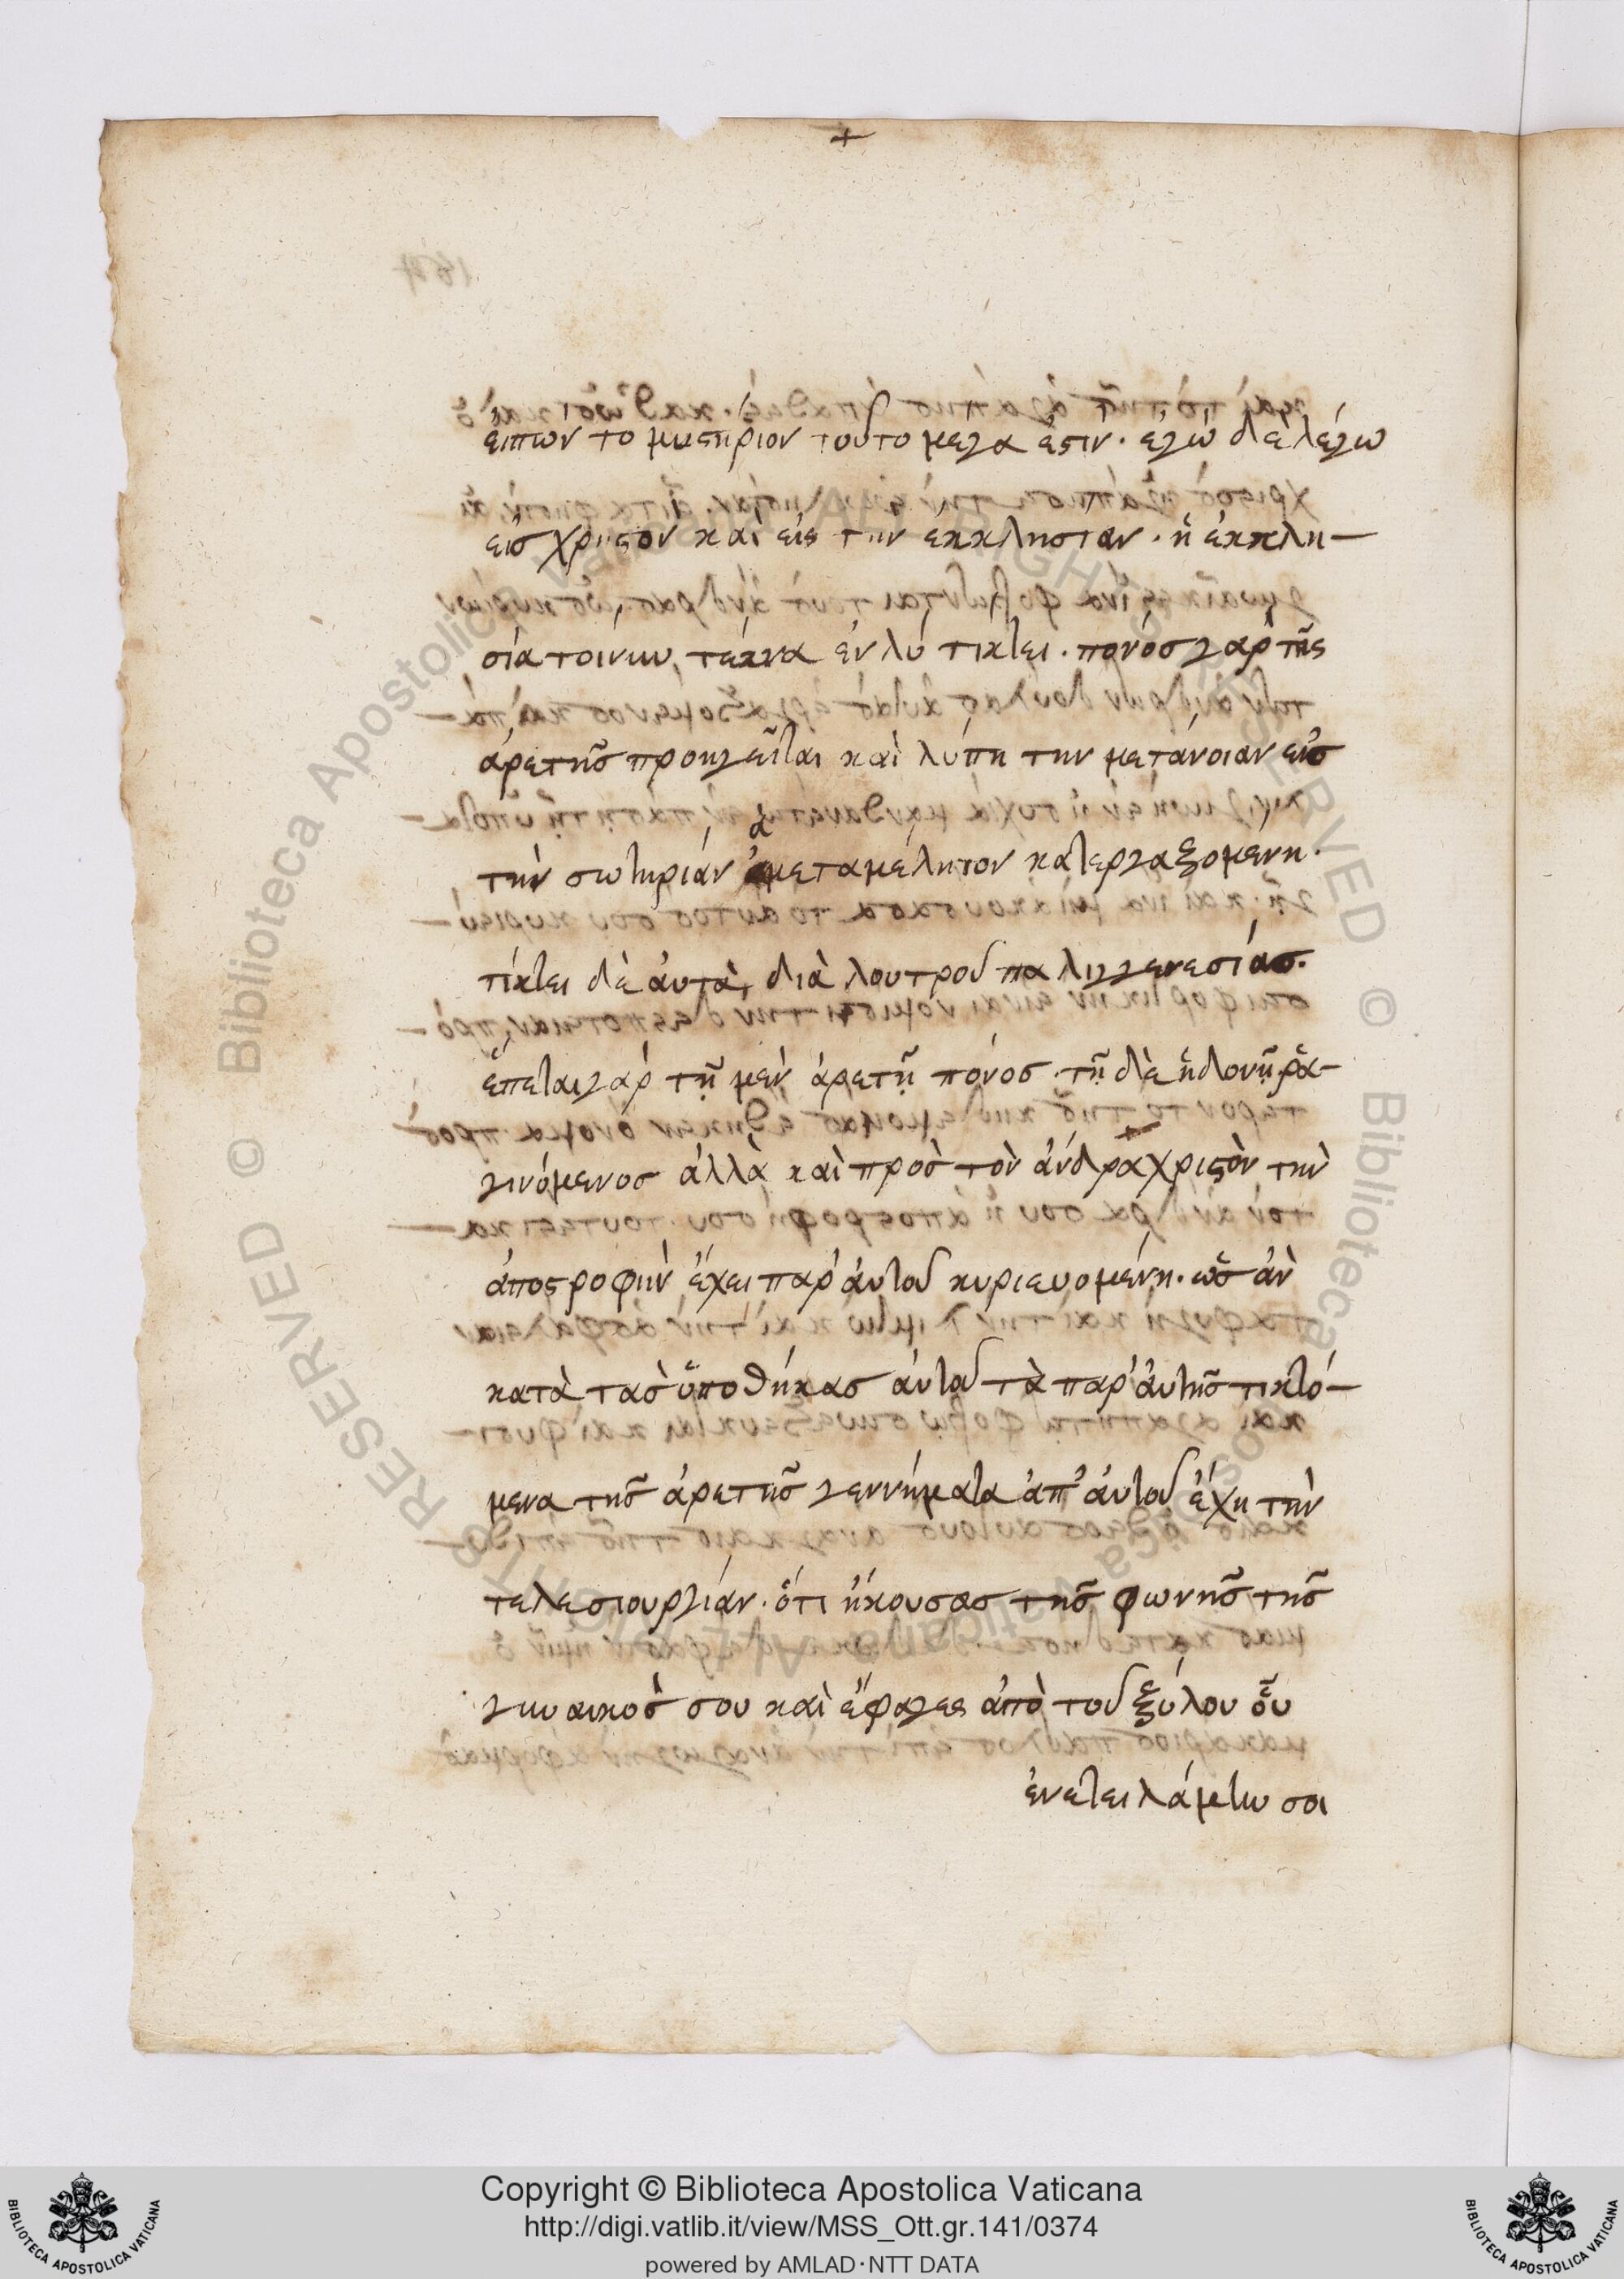 +
εἰπὼν τὸ μυστήριον τοῦτο μέγα ἐστίν· ἐγὼ δὲ λέγω
εἰς χριστὸν καὶ εἰς τὴν ἐκκλησίαν· ἡ ἐκκλη-
σία τοίνυν, τέκνα ἐν λύ τίκτει· πόνος γὰρ τῆς
ἀρετῆς προηγεῖται καὶ λύπη τὴν μετάνοιαν εἰς
τὴν σωτηρίαν ἀμεταμέλητον κατεργαζομένη·
τίκτει δὲ αὐτὰ, διὰ λουτροῦ παλιγγενεσίας·
ἕπεται γὰρ τῇ μὲν ἀρετῇ πόνος· τῇ δὲ ἡδονῇ ῥᾳ-
γινόμενος ἀλλὰ καὶ πρὸς τὸν ἄνδρα χριστὸν τὴν
ἀποστροφὴν ἔχει παρ' αὐτοῦ κυριευομένη· ὡς ἂν
κατὰ τὰς ὑποθήκας αὐτοῦ τὰ παρ' αὐτῆς τικτό-
μενα τῆς ἀρετῆς γεννήματα ἀπ' αὐτοῦ ἔχῃ τὴν
τελεσιουργίαν· ὅτι ἤκουσας τῆς φωνῆς τῆς
γυναικός σου καὶ ἔφαγες ἀπὸ τοῦ ξύλου οὗ
ἐνετειλάμην σοι
Copyright © Biblioteca Apostolica Vaticana
http://digi.vatlib.it/view/MSS_Ott.gr.141/0374
powered by AMLAD·NTT DATA
BIBLIOTECA APOSTOLICA VATICANA
BIBLIOTECA APOSTOLICA VATICANA